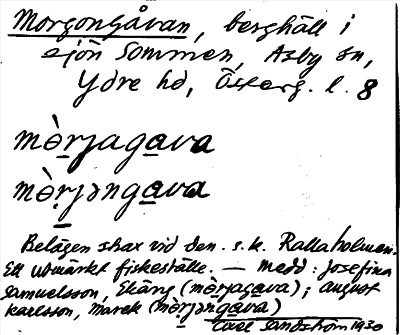 Morgongåvan, berghäll i
sjön Sommen, Asby sn,
Ydre hd, Österg. l. 8
mòrjagava
mòrjəngava
Belägen strax vid den s.k. Rallaholmen.
Ett utmärkt fiskeställe. — Medd: Josefina
Samuelsson, Ekäng (mòrjagava); August
Karlsson, Marek (mòrjəngava)
Carl Sandström 1930